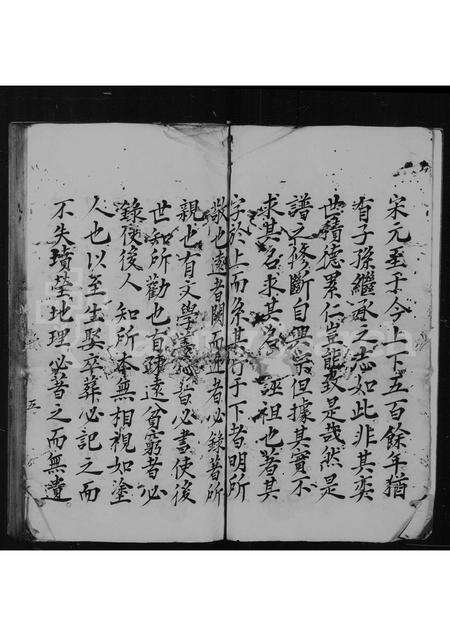 宋元至于今上下五百餘年猶
有子孫繼承之志如此非其奕
世積德累仁豈能致是哉然是
譜之修斷自興宗但據其實不
求其名求其名誣祖也著其
字於上而系其行于下者明所
敬也遠者闕而近者必錄者所
親也有文學者必書使後
世知所勸也自疎遠貧窮者必
錄使後人知所本無相視如塗
人也以至生娶卒葬必記之而
不失墳塋地理必著之而無遺
五